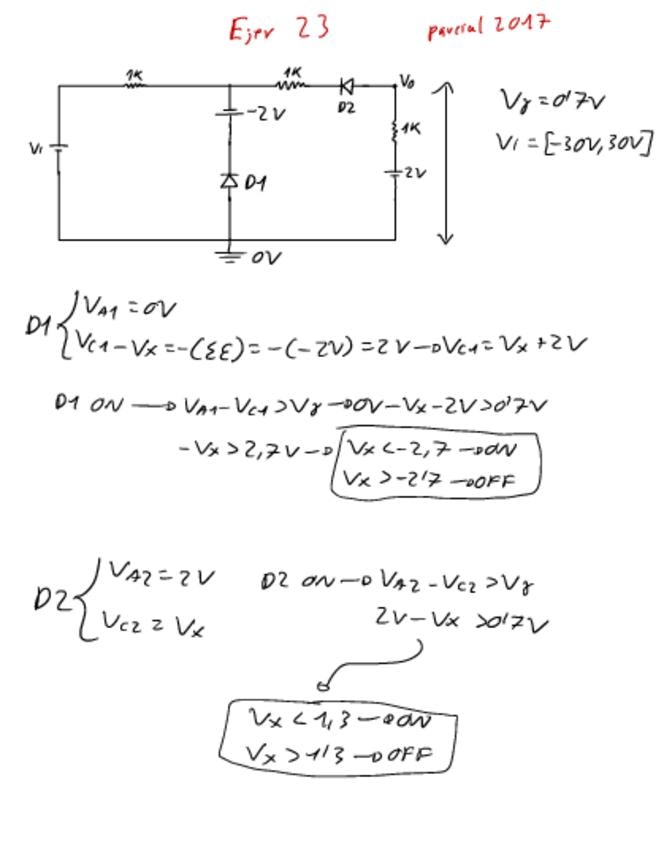 Ejer 23 parcial 2017
1K 1K Vo
-2V D2
Vi 1K
D1 2V
0V
Vγ = 0'7V
Vi = [-30V, 30V]
D1 { VA1 = 0V
VC1 - Vx = -(ΣE) = -(-2V) = 2V → VC1 = Vx + 2V
D1 ON → VA1 - VC1 > Vγ → 0V - Vx - 2V > 0'7V
-Vx > 2,7V → Vx < -2,7 → ON
Vx > -2'7 → OFF
D2 { VA2 = 2V D2 ON → VA2 - VC2 > Vγ
VC2 = Vx 2V - Vx > 0'7V
Vx < 1,3 → ON
Vx > 1'3 → OFF